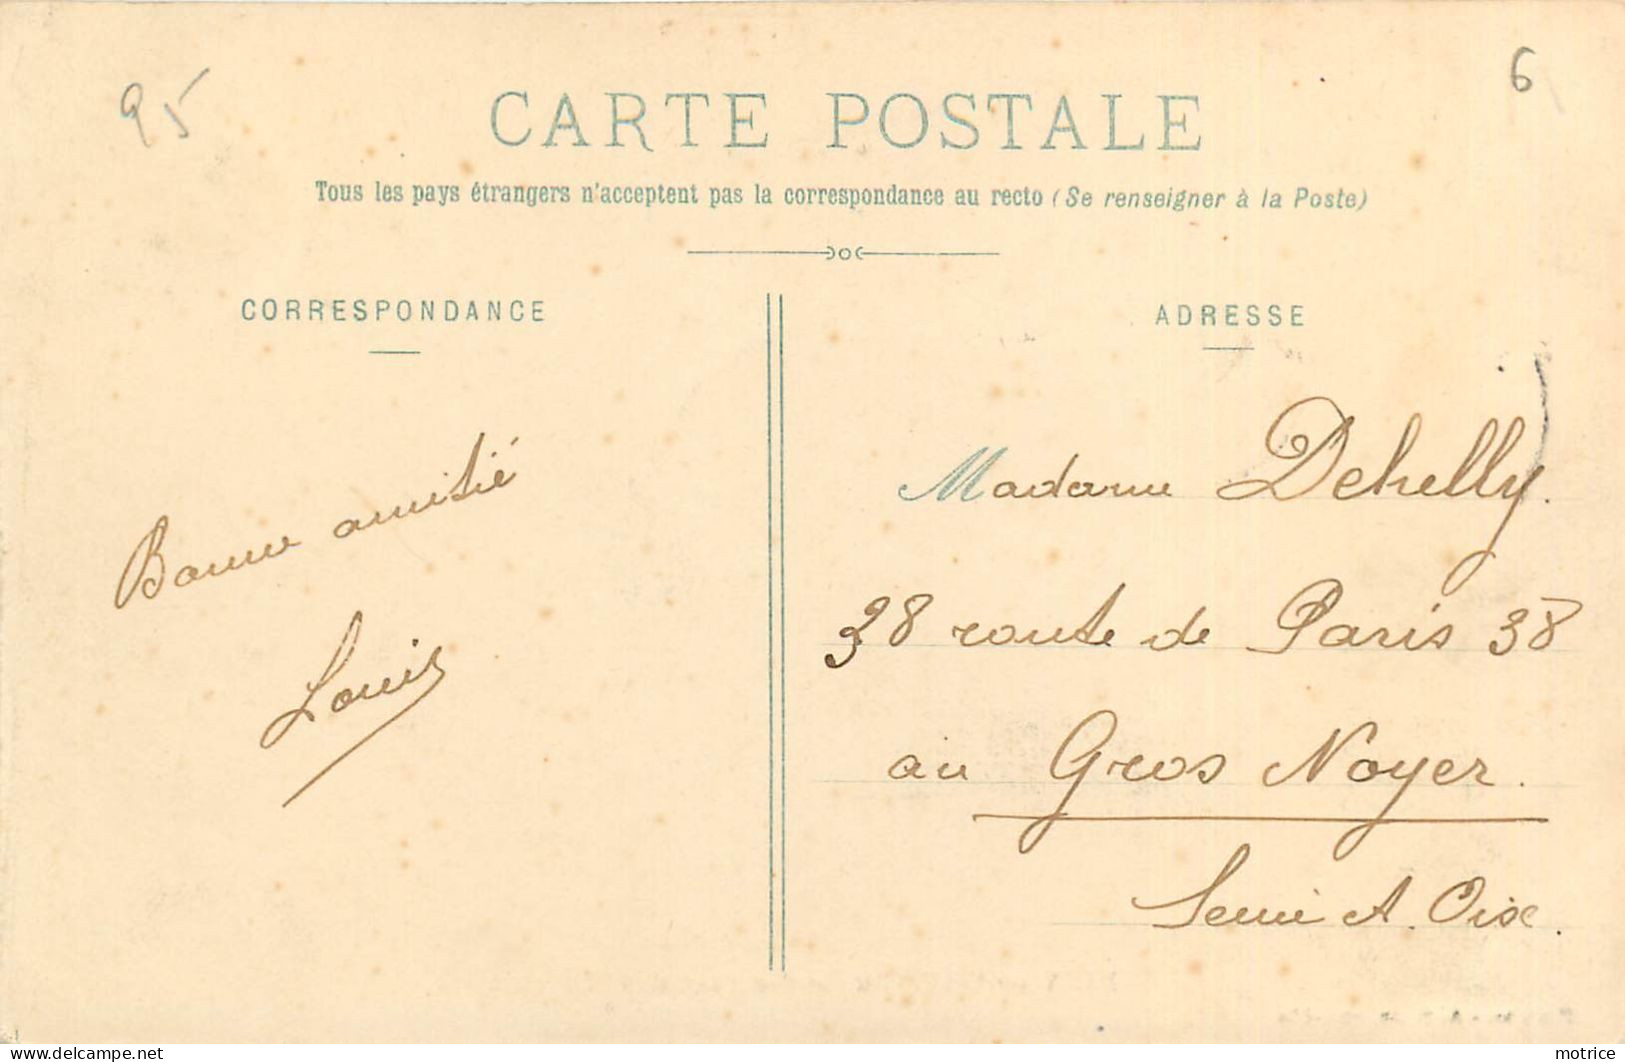 95
6
CARTE POSTALE
Tous les pays étrangers n'acceptent pas la correspondance au recto (Se renseigner à la Poste)
CORRESPONDANCE
ADRESSE
Bonne amitié
Louis
Madame Dehelly.
38 route de Paris 38
au Gros Noyer.
Seine & Oise.
delcampe.net
motrice